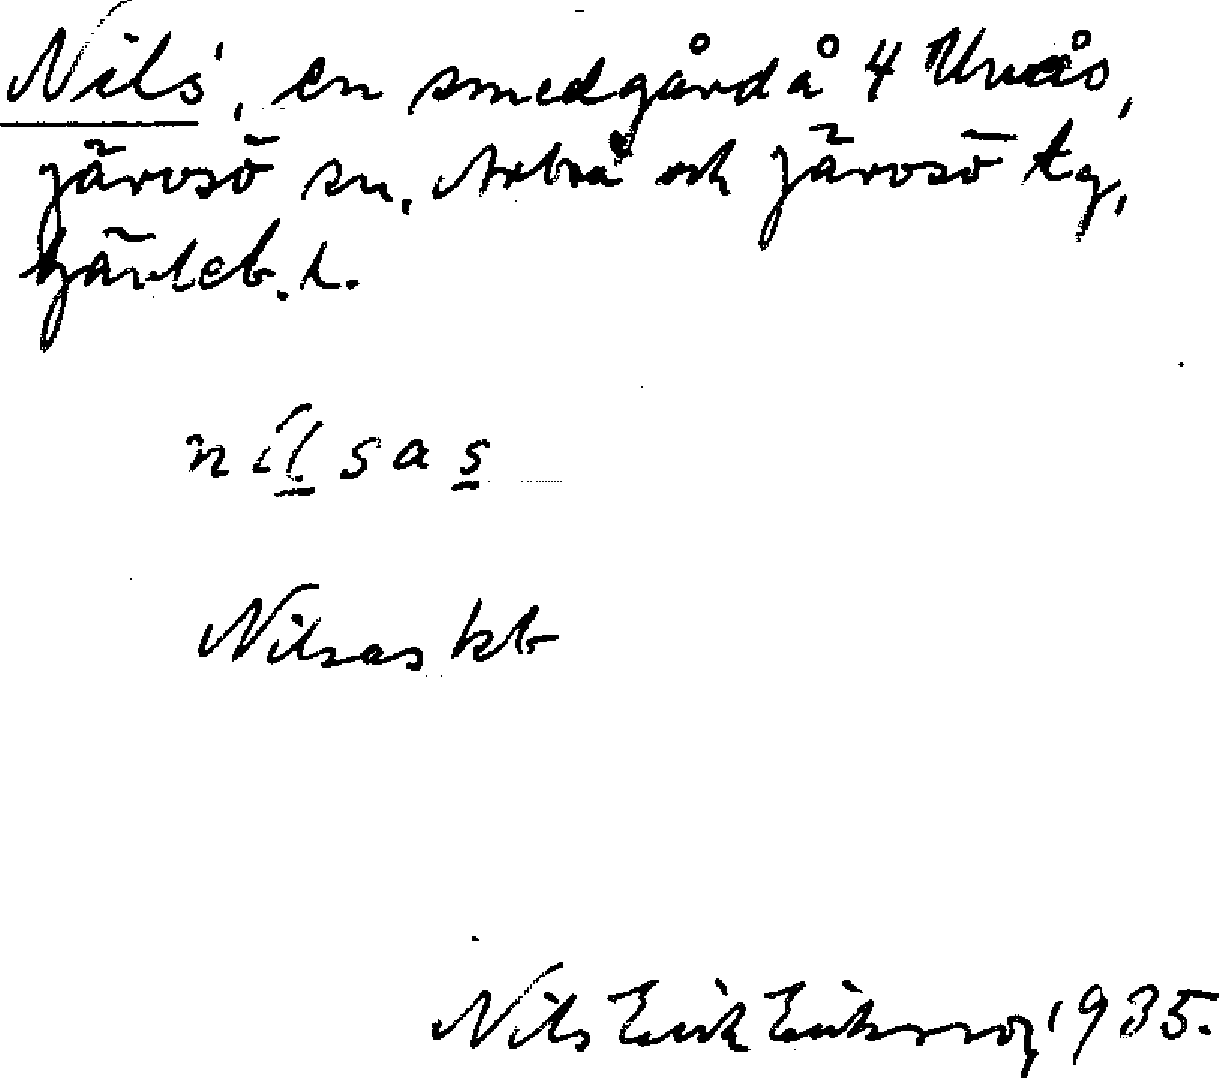 Nils, en smedgård å 4 Unås,
Järvsö sn. Arbrå och Järvsö tg,
Gävleb. l.
nilsas
Nilsas kb
Nils Erik Eriksson, 1935.